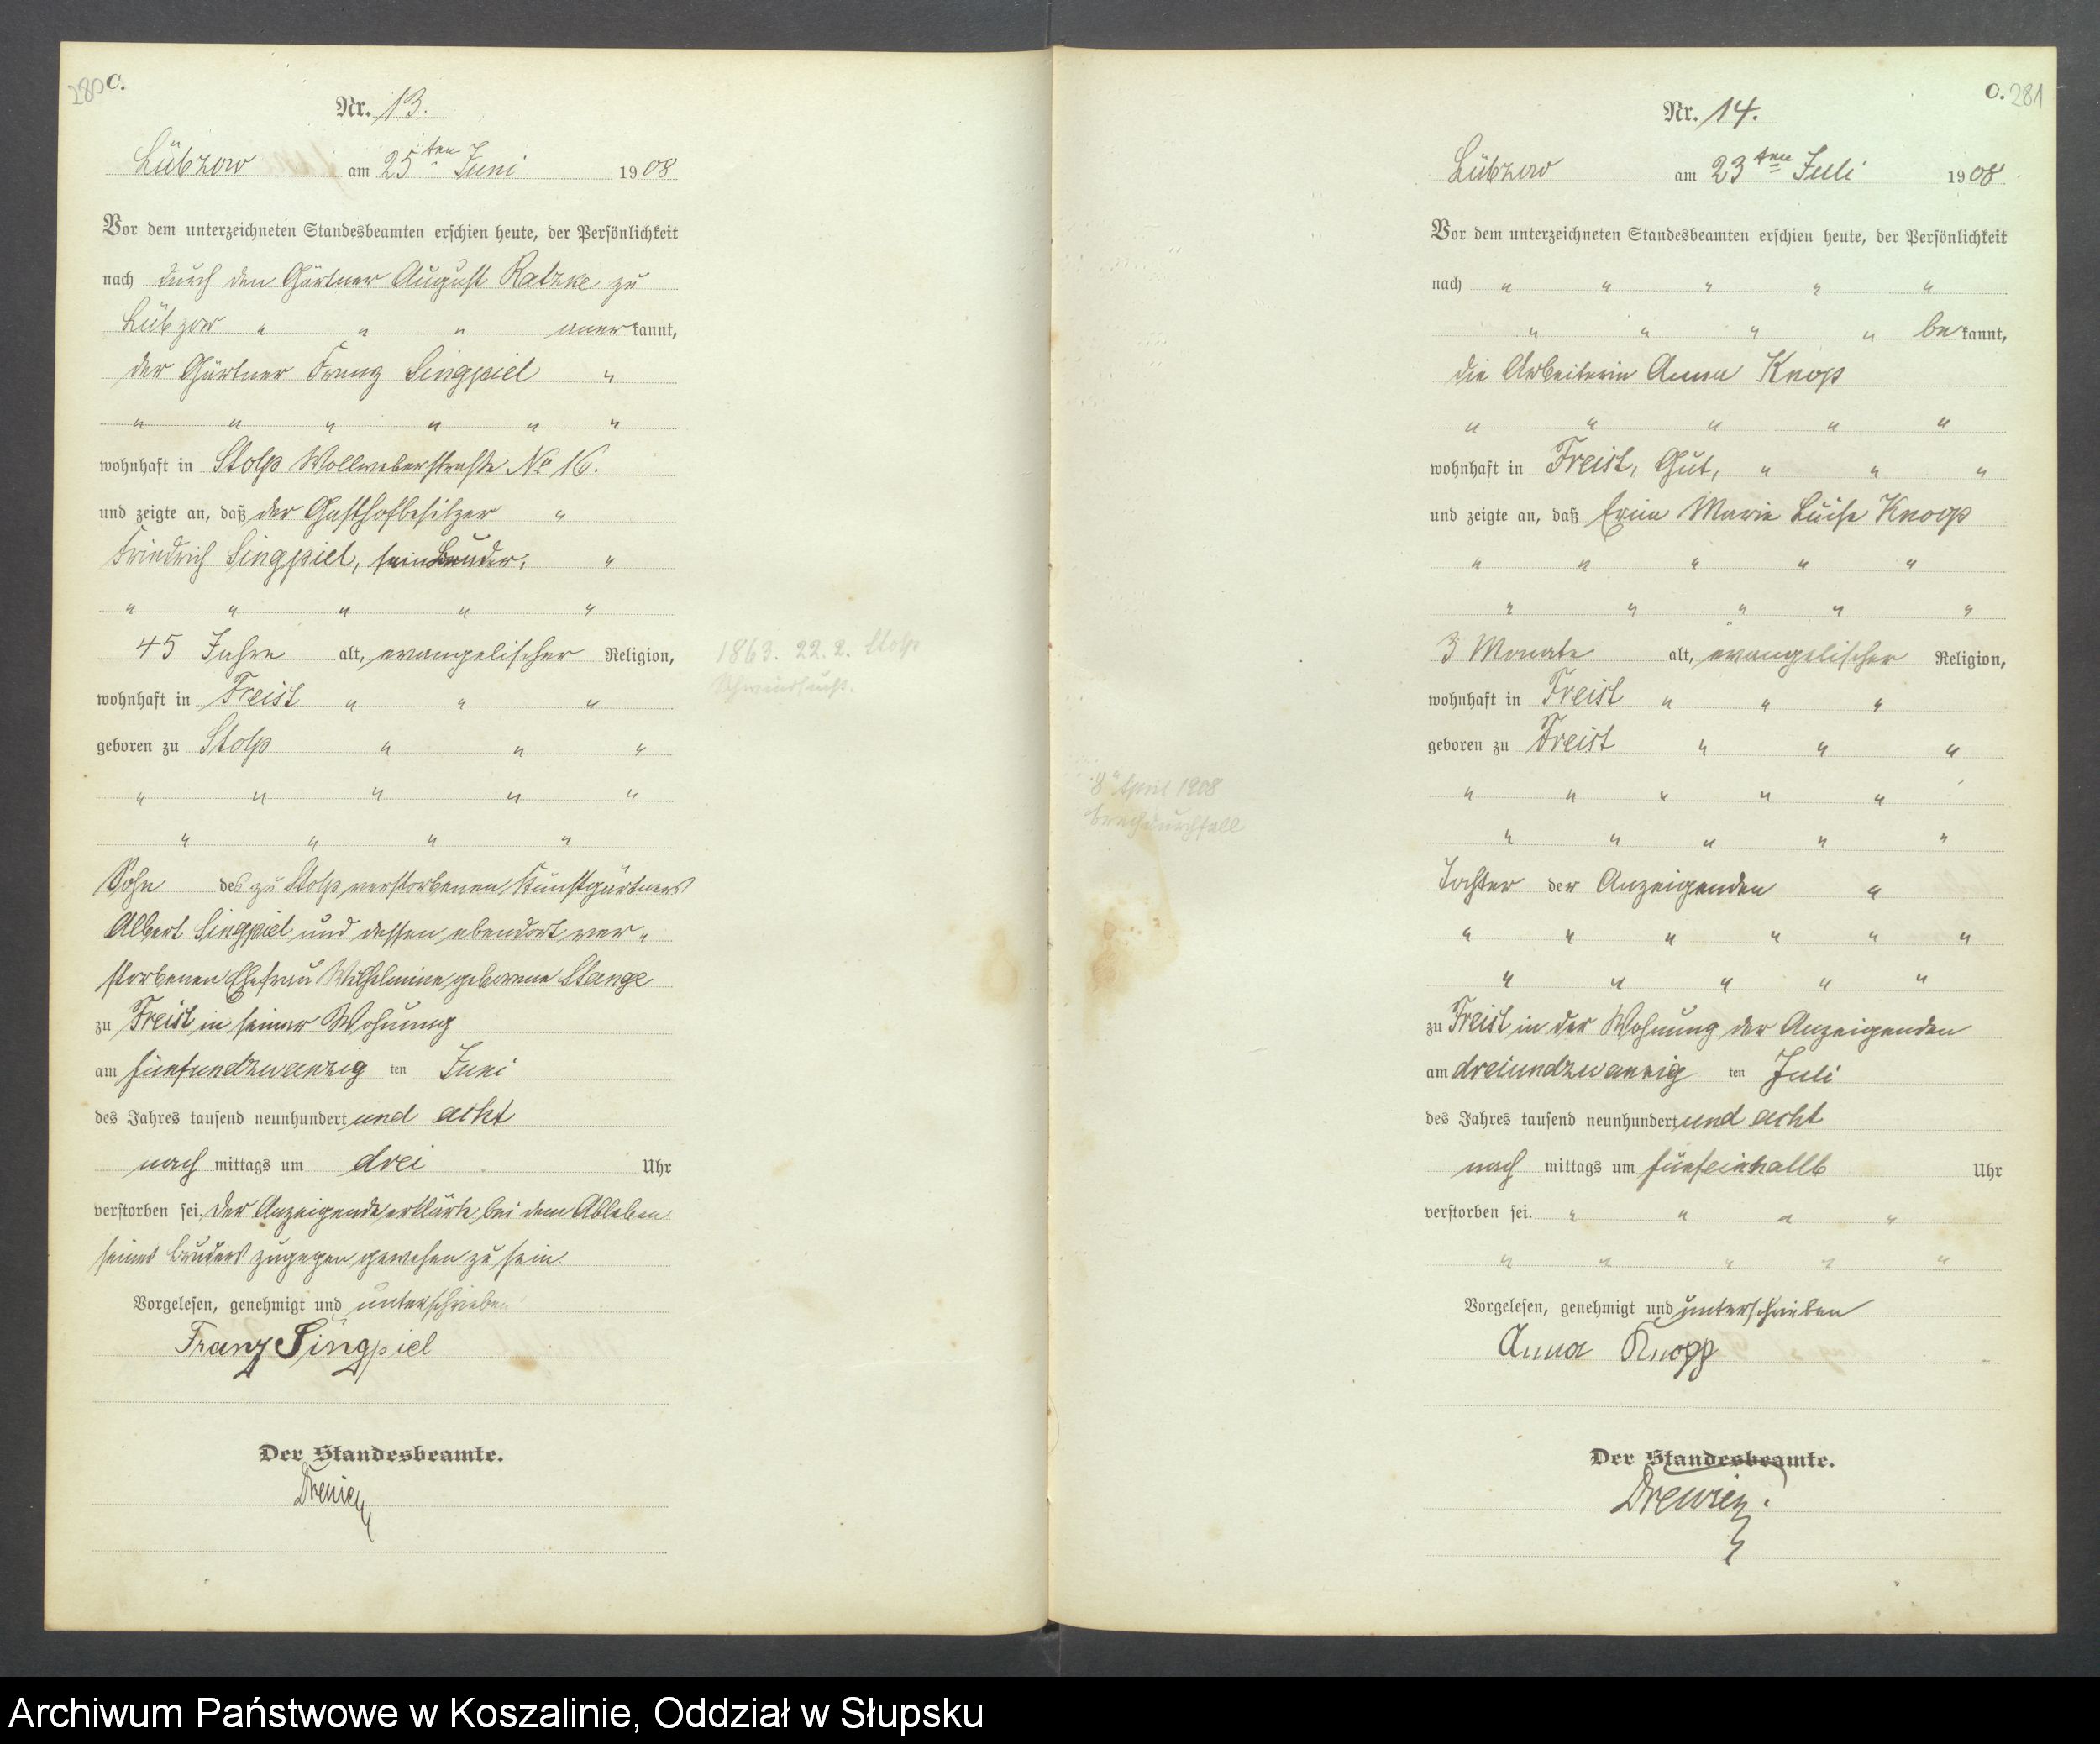 280 C.
Nr. 13.
Lübzow am 25ten Juni 1908
Vor dem unterzeichneten Standesbeamten erschien heute, der Persönlichkeit
nach durch den Gärtner August Ratzke zu
Lübzow " " " anerkannt,
der Gärtner Franz Singpiel "
" " " " " "
wohnhaft in Stolp Wollweberstraße No 16.
und zeigte an, daß der Gasthofbesitzer "
Friedrich Singpiel, sein Bruder, "
" " " " "
45 Jahre alt, evangelischer Religion,
wohnhaft in Freist " " "
geboren zu Stolp " " "
" " " " "
" " " "
Sohn des zu Stolp verstorbenen Kunstgärtners
Albert Singpiel und dessen ebendort ver-
storbenen Ehefrau Wilhelmine geborene Stange
zu Freist in seiner Wohnung
am fünfundzwanzig ten Juni
des Jahres tausend neunhundert und acht
nach mittags um drei Uhr
verstorben sei. Der Anzeigende erklärte, bei dem Ableben
seines Bruders zugegen gewesen zu sein.
Vorgelesen, genehmigt und unterschrieben
Franz Singpiel
Der Standesbeamte.
Drewien
1863. 22. 2. Stolp
Schwindsucht.
C. 281
Nr. 14.
Lübzow am 23ten Juli 1908
Vor dem unterzeichneten Standesbeamten erschien heute, der Persönlichkeit
nach " " " " "
" " " " bekannt,
die Arbeiterin Anna Knop
" " " " "
wohnhaft in Freist, Gut, " " "
und zeigte an, daß Erna Marie Luise Knop
" " " " "
" " " " "
3 Monate alt, evangelischer Religion,
wohnhaft in Freist " " "
geboren zu Freist " " "
" " " " "
" " " " "
Tochter der Anzeigenden "
" " " " " "
" " " " "
zu Freist in der Wohnung der Anzeigenden
am dreiundzwanzig ten Juli
des Jahres tausend neunhundert und acht
nach mittags um fünfeinhalb Uhr
verstorben sei. " " " "
" " " " "
Vorgelesen, genehmigt und unterschrieben
Anna Knopp
Der Standesbeamte.
Drewien.
8" April 1908
Brechdurchfall
Archiwum Państwowe w Koszalinie, Oddział w Słupsku